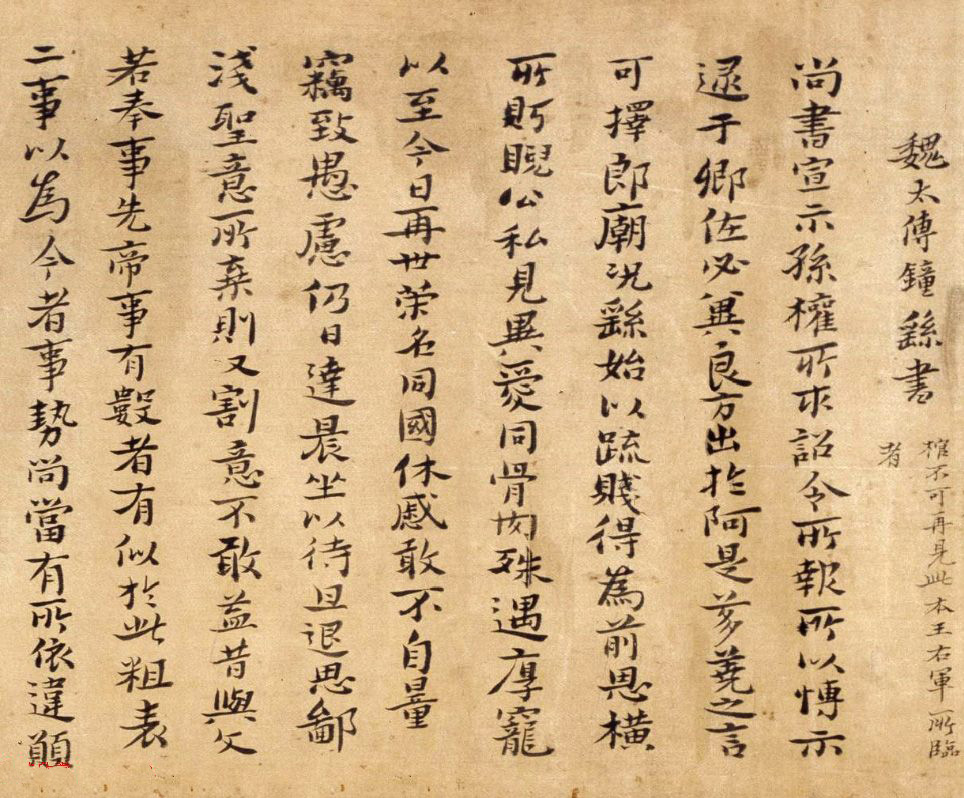 魏太傅鐘繇書
棺不可再見此本王右軍所臨
者
尚書宣示孫權所求詔令所報所以博示
逮于卿佐必冀良方出於阿是芻蕘之言
可擇郎廟況繇始以疏賤得為前恩橫
所眄睨公私見異愛同骨肉殊遇厚寵
以至今日再世榮名同國休慼敢不自量
竊致愚慮仍日達晨坐以待旦退思鄙
淺聖意所棄則又割意不敢益昔與文
若奉事先帝事有數者有似於此粗表
二事以為今者事勢尚當有所依違願